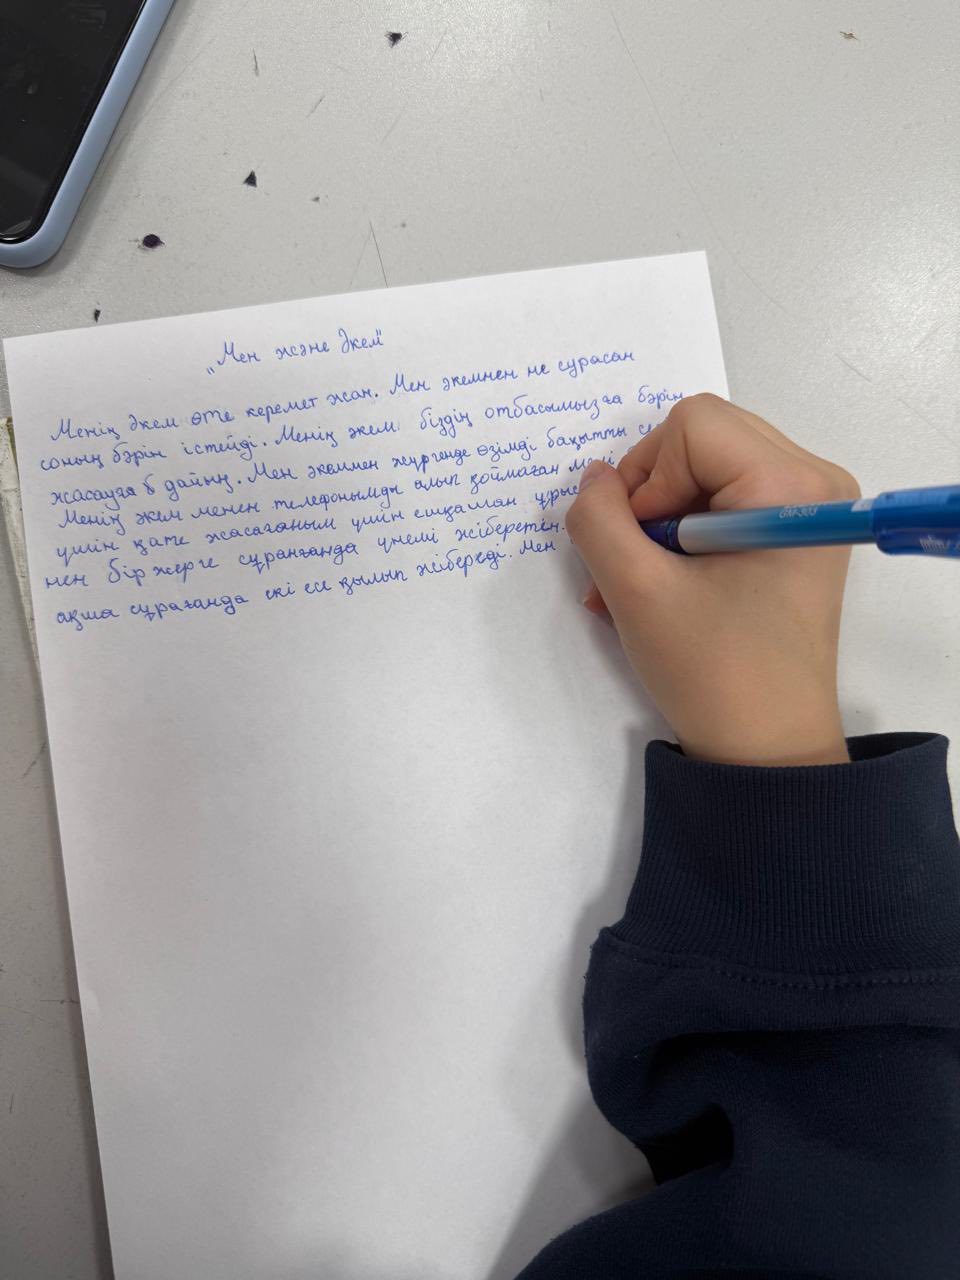 „Мен және Әкем"
Менің Әкем өте керемет жан. Мен әкемнен не сұрасан
соның бәрін істейді. Менің әкем біздің отбасымызға бәрін
жасауға б дайың. Мен әкеммен жүргенде өзімді бақытты
Менің әкем менен телефонымды алып қоймаған
үшін қате жасағаным үшін ешқашан
мен бір жерге сұранғанда үнемі жіберетін.
ақша сұрағанда екі есе қылып жібереді. Мен